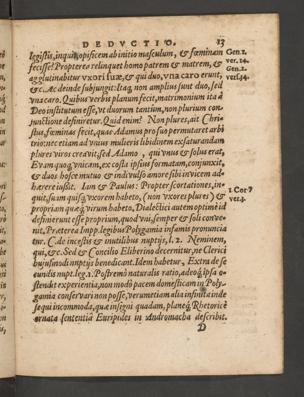 DEDVCTIO. 13
legistis, inquit, opificem ab initio masculum, & fœminam
fecisse? Propterea relinquet homo patrem & matrem, &
agglutinabitur vxori suæ, & qui duo, vna caro erunt,
&c. Ac deinde subjungit: Itaq; non amplius sunt duo, sed
vna caro. Quibus verbis planum fecit, matrimonium ita à
Deo institutum esse, vt duorum tantùm, non plurium con-
junctione definiretur. Quid enim? Non plures, ait Chri-
stus, fœminas fecit, quæ Adamus pro suo permutaret arbi
trio: nec etiam ad vnius mulieris libidinem exsaturandam
plures viros creavit, sed Adamo, qui vnus & solus erat,
Evam quoq; vnicam, ex costa ipsius formatam, conjunxit,
& duos hosce mutuo & individuo amore sibi invicem ad-
hærere iussit. Iam & Paulus: Propter scortationes, in-
quit, suam quisq; vxorem habeto, (non vxores plures) &
propriam quæq; virum habeto. Dialectici autem optimè id
definierunt esse proprium, quod vni, semper & soli conve-
nit. Præterea Impp. legibus Polygamia infamis pronuncia
tur. C. de incestis & inutilibus nuptijs, l. 2. Neminem,
qui, &c. Sed & Concilio Eliberino decernitur, ne Clerici
hujusmodi nuptijs benedicant. Idem habetur, Extra de se
cundis nupt. leg. 1. Postremò naturalis ratio, adeoq; ipsa o-
stendit experientia, non modò pacem domesticam in Poly-
gamia conservari non posse, verum etiam alia infinita inde
sequi incommoda, quæ insigni quadam, planeq; Rhetoricè
ornata sententiâ Euripides in Andromacha describit.
D
Gen. 1.
ver. 24.
Gen. 2.
vers. 4.
1. Cor. 7
ver. 3.